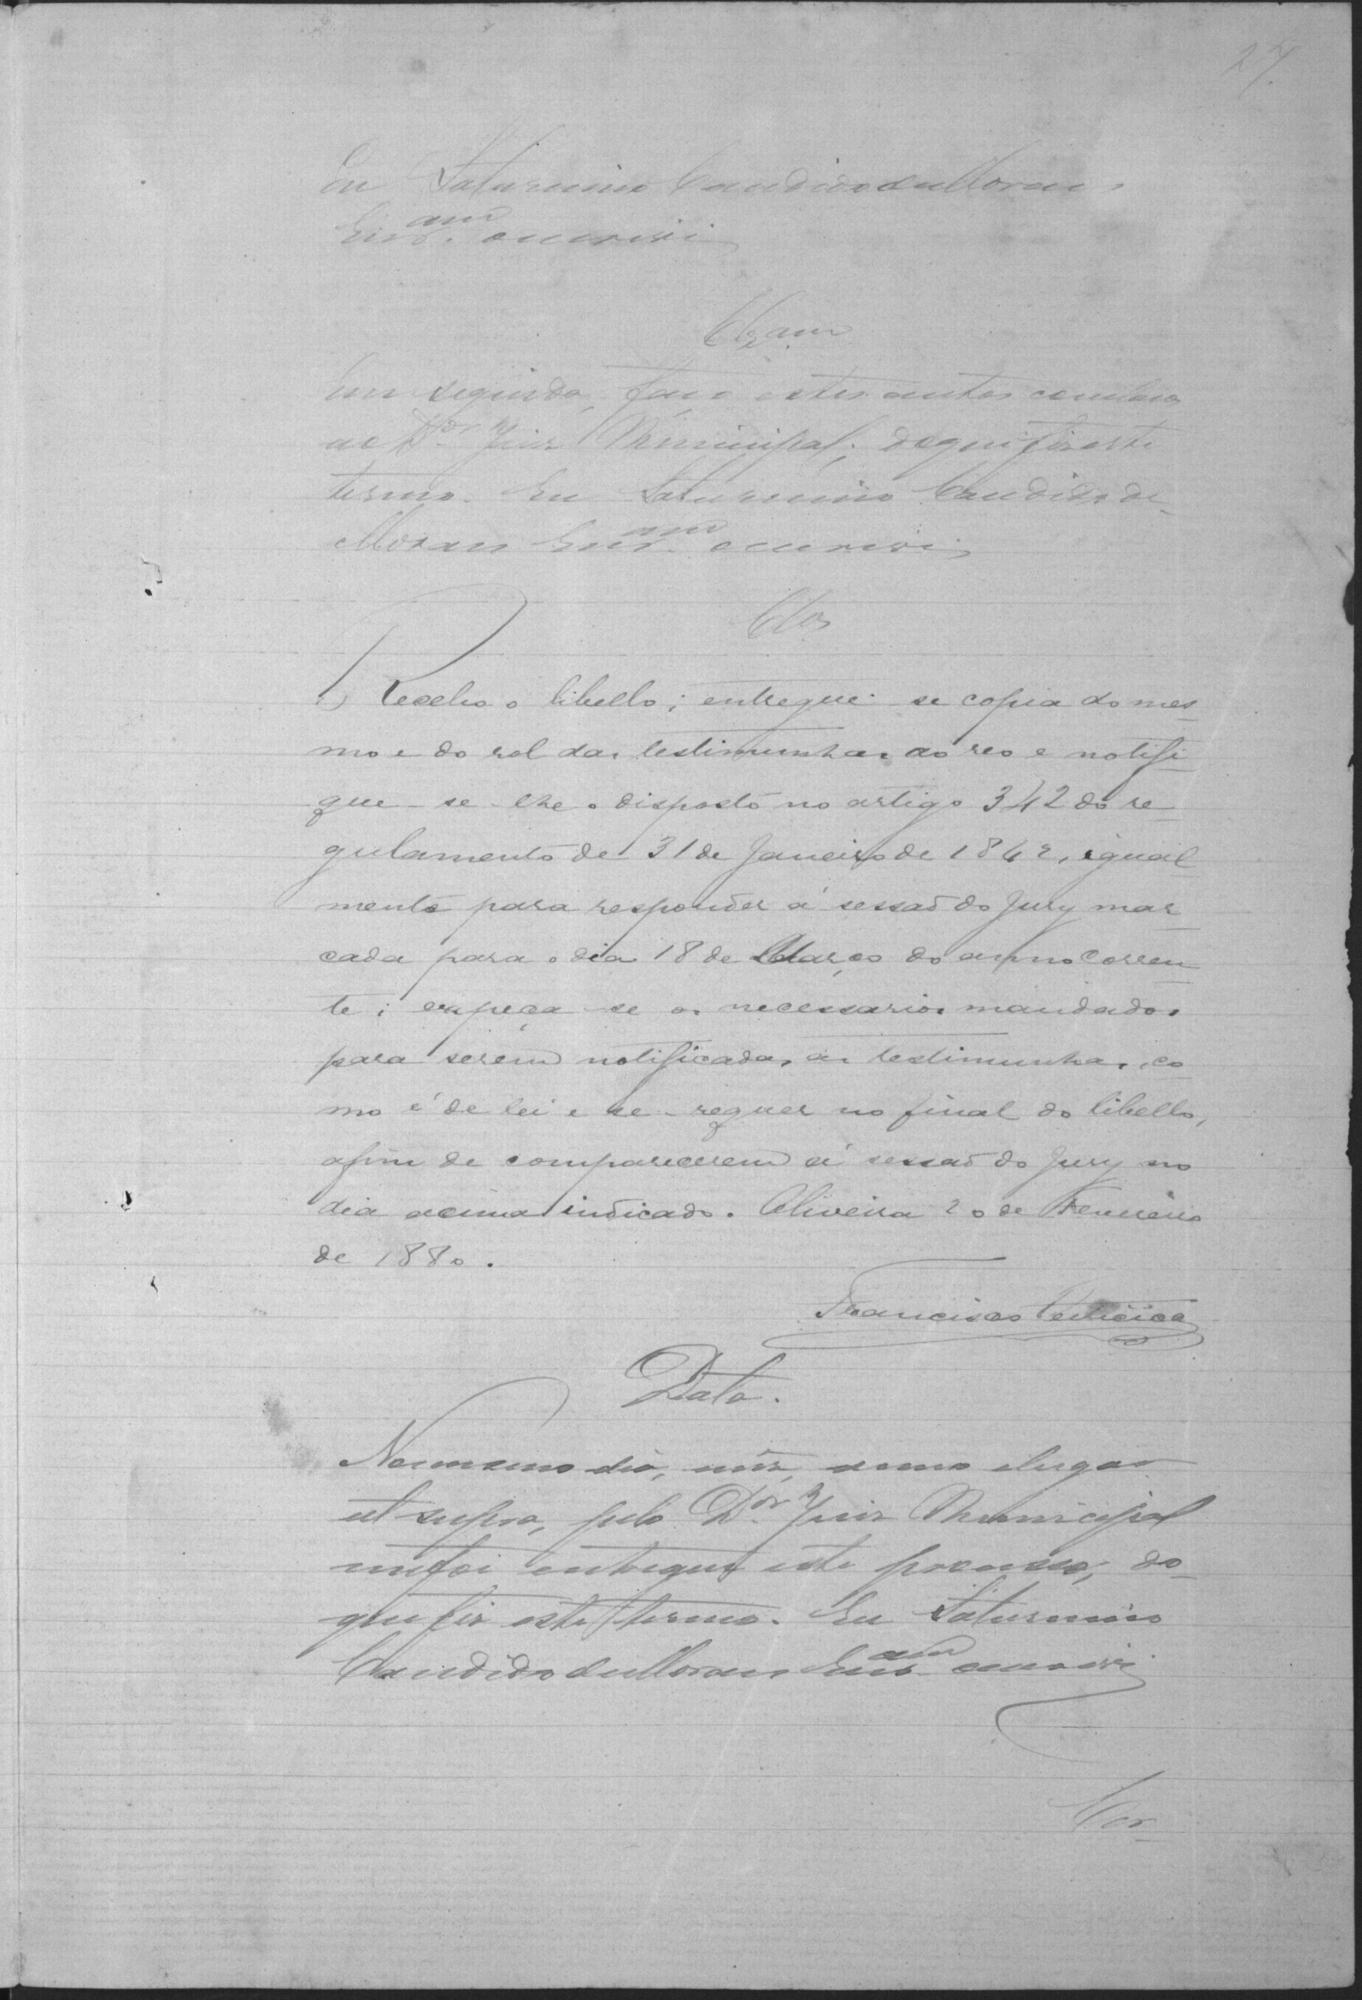 27
Eu Saturnino Candido de Moraes,
Escr.am o escrevi
Cls.am
Em seguida, faço estes autos conclusos
ao D.or Juiz Municipal; do que fiz este
termo. Eu Saturnino Candido de
Moraes Escr.am o escrevi
Clos
Recebo o libello; entregue-se copia do mes-
mo e do rol das testimunhas ao reo e notifi-
que-se-lhe o disposto no artigo 342 do re-
gulamento de 31 de Janeiro de 1842, igual-
mente para responder á sessaõ do Jury mar-
cada para o dia 18 de Março do anno corren-
te; expeça-se os necessarios mandados
para serem notificadas as testimunhas, co-
mo é de lei e se requer no final do libello,
afim de comparecerem á sessaõ do Jury no
dia acima indicado. Oliveira 20 de Fevereiro
de 1880.
Francisco
Data.
No mesmo dia, mês, anno e lugar
ut supra, pelo D.or Juiz Municipal
me foi entregue este processo; do
que fiz este termo. Eu Saturnino
Candido de Moraes Escr.am o escrevi